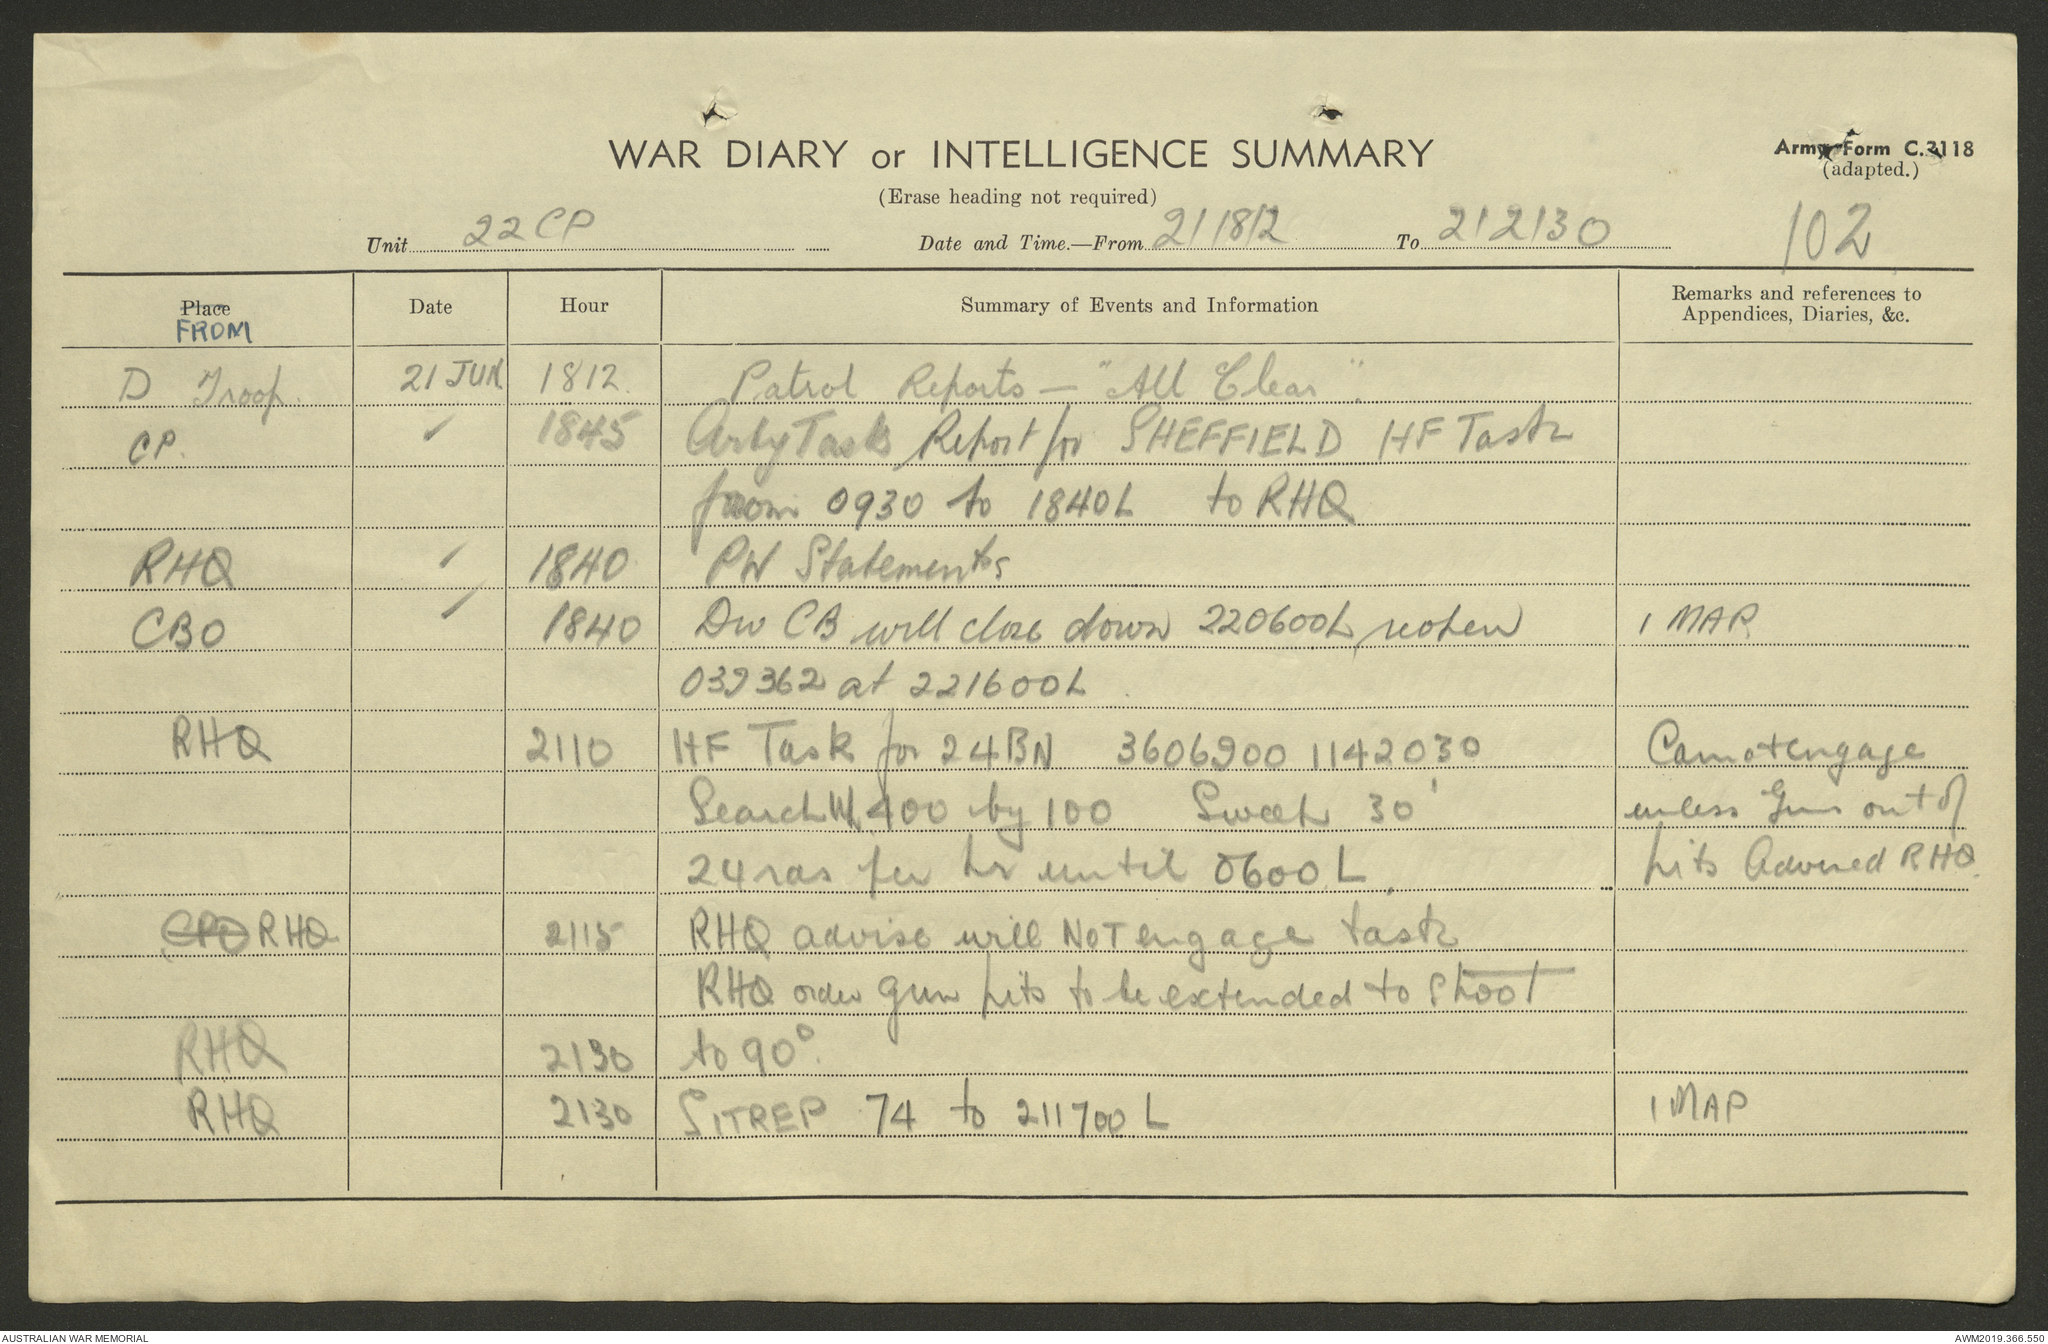 WAR DIARY or INTELLIGENCE SUMMARY
Army Form C.2118
(adapted.)
(Erase heading not required)
Unit 22 CP Date and Time.—From 211812 To 212130 102
Place Date Hour Summary of Events and Information Remarks and references to Appendices, Diaries, &c.
FROM
D Troop. 21 JUN 1812. Patrol Reports — "All Clear".
CP. " 1845 Arty Task Report for SHEFFIELD HF Task
from 0930 to 1840L to RHQ
RHQ " 1840 PW Statements
CBO " 1840 Div CB will close down 220600L, reopen 1 MAP
039362 at 221600L.
RHQ 2110 HF Task for 24 BN 3606900 1142030 Cannot engage
Search 400 by 100 Sweep 30' unless Guns out of
24 rds per hr until 0600 L. pits Advised RHQ.
CPO RHQ 2115 RHQ advise will NOT engage task
RHQ order gun pits to be extended to shoot
RHQ 2130 to 90°.
RHQ 2130 SITREP 74 to 211700 L 1 MAP
AUSTRALIAN WAR MEMORIAL AWM2019.366.550